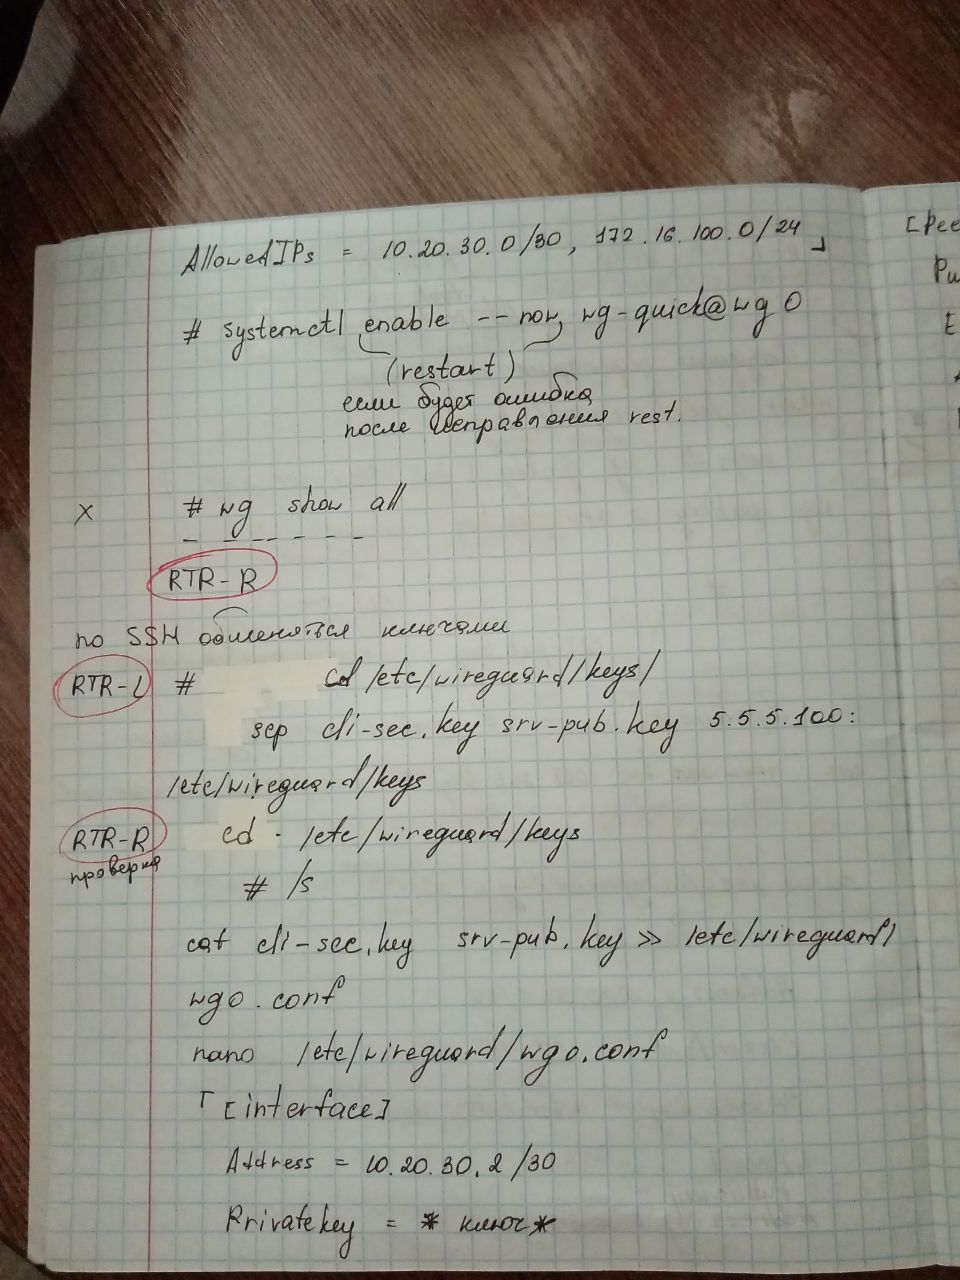 AllowedIPs = 10.20.30.0/30, 172.16.100.0/24 」
# systemctl enable --now wg-quick@wg0
(restart)
если будет ошибка
после исправления rest.
x # wg show all
RTR-R
по SSH обменяться ключами
RTR-L # cd /etc/wireguard/keys/
scp cli-sec.key srv-pub.key 5.5.5.100:
/etc/wireguard/keys
RTR-R cd /etc/wireguard/keys
проверка
# ls
cat cli-sec.key srv-pub.key >> /etc/wireguard/
wg0.conf
nano /etc/wireguard/wg0.conf
「[interface]
Address = 10.20.30.2/30
Privatekey = * ключ*
[Pee
Pu
E